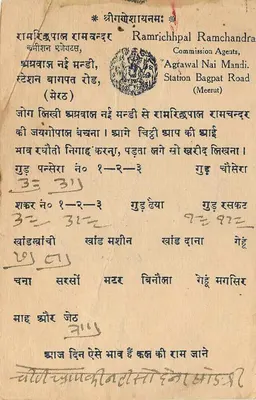 श्रीगणेशायनमः
रामरिछपाल रामचन्दर
Ramrichhpal Ramchandra
कमीशन एजेण्टस,
Commission Agents,
अग्रवाल नई मन्डी,
Agrawal Nai Mandi.
स्टेशन बागपत रोड,
Station Bagpat Road
(मेरठ)
(Meerut)
जोग लिखी अग्रवाल नई मन्डी से रामरिछपाल रामचन्दर
की जयगोपाल बंचना। आगे चिट्ठी आप की आई
भाव रचौती निगाह करना, पड़ता लगे सो खरीद लिखना।
गुड़ पन्सेरा नं० १—२—३ गुड़ चौसेरा
शकर नं० १—२—३ गुड़ ढैया गुड़ रसकट
खांडखांची खांड मशीन खांड दाना गेहूं
चना सरसों मटर बिनौला गेहूं मगसिर
माह और जेठ
आज दिन ऐसे भाव हैं कल की राम जाने